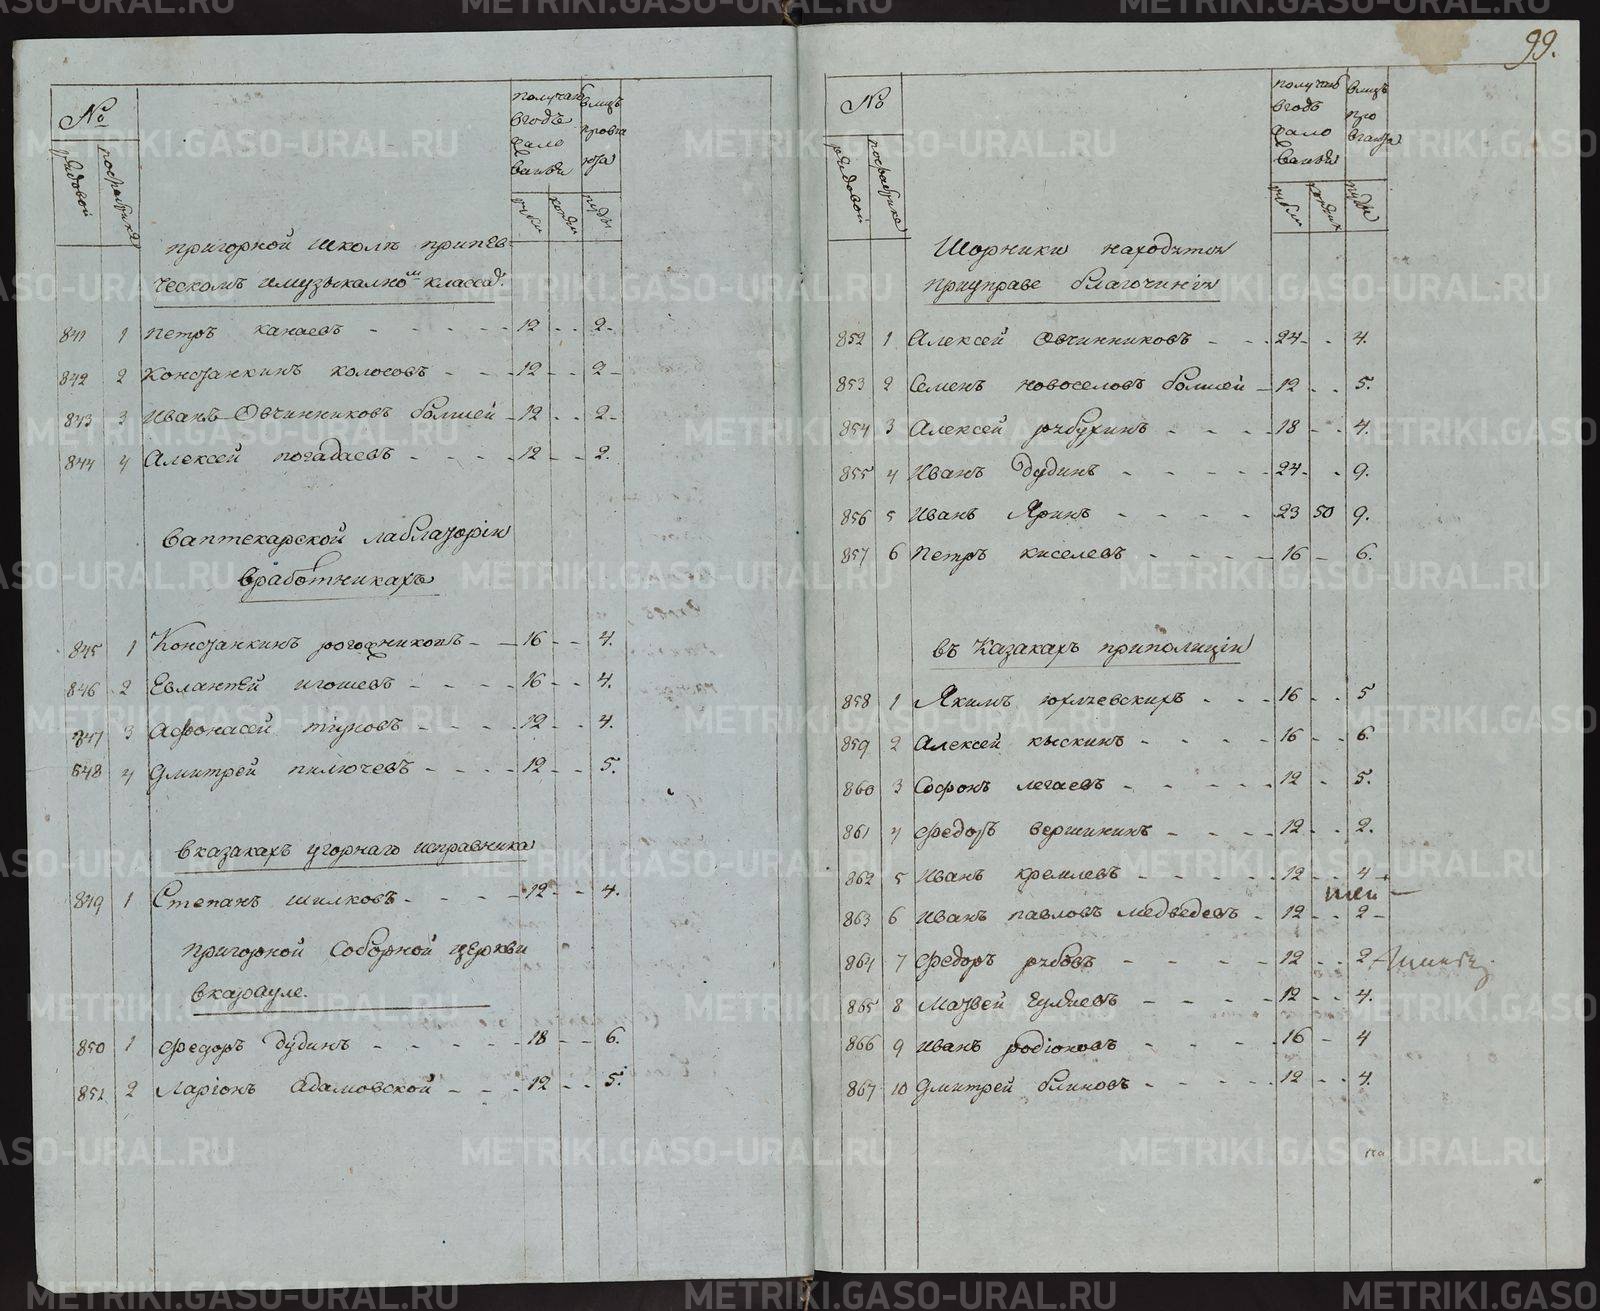 №
рядовой
пофабрике
получаю
вгодъ
жало
ванья
вмцъ
провиа
нта
рубли
копѣи
пуды
пригорной школѣ припев
ческомъ имузыкалномъ класса̄
841 1 Петръ канаевъ - - - - - 12 - - 2 -
842 2 Констанкинъ колосовъ - - - 12 - - 2 -
843 3 Иванъ Овчинниковъ болшей - 12 - - 2 -
844 4 Алексей погадаевъ - - - - 12 - - 2.
ваптекарской лаблаторіи
вработникахъ
845 1 Констанкинъ рогожниковъ - - 16 - - 4.
846 2 Евлантей игошевъ - - - - 16 - - 4.
847 3 Афонасей тіуновъ - - - - 12 - - 4.
848 4 Дмитрей пилючевъ - - - - 12 - - 5.
вказакахъ угорнаго исправника
849 1 Степанъ шилковъ - - - - 12 - - 4.
пригорной Соборной церкви
вкарауле.
850 1 Федоръ дудинъ - - - - - 18 - - 6.
851 2 Ларіонъ Адамовской - - - 12 - - 5.
99.
№
рядовой
пофабрике
получаю
вгодъ
жало
ванья
вмцъ
про
вианта
рубли
копѣик
пуды
Шорники находятся
приуправе благочинія
852 1 Алексей Овчинниковъ - - 24 - - 4.
853 2 Семенъ новоселовъ болшей - 12 - - 5.
854 3 Алексей рябухинъ - - - - 18 - - 4.
855 4 Иванъ дудинъ - - - - - 24 - - 9.
856 5 Иванъ Яринъ - - - - 23 50 9.
857 6 Петръ киселевъ - - - - 16 - 6.
въ Казакахъ приполиціи
858 1 Якимъ юрлчевскихъ - - - 16 - - 5
859 2 Алексей кыскинъ - - - - 16 - - 6.
860 3 Софонъ легаевъ - - - - - 12 - 5.
861 4 Федоръ вершининъ - - - - 12 - - 2.
862 5 Иванъ кремлевъ - - - - - 12 - - 4
863 6 Иванъ павловъ медведевъ - 12 - - 2 -
864 7 Федоръ рябовъ - - - - 12 - - 2
865 8 Матвей Гуляевъ - - - - 12 - - 4.
866 9 Иванъ родіоновъ - - - - 16 - 4
867 10 Дмитрей блиновъ - - - - 12 - - 4.
METRIKI.GASO-URAL.RU